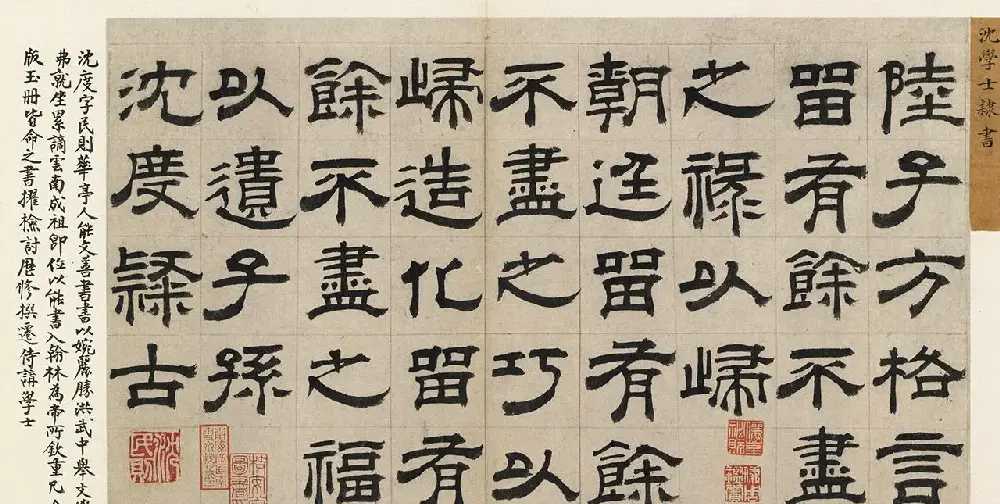 沈學士隸書
陸子方格言
留有餘不盡
之祿以歸
朝廷留有餘
不盡之巧以
歸造化留有
餘不盡之福
以遺子孫
沈度隸古
沈度字民則華亭人能文善書書以婉麗勝洪武中舉文學
弗就坐累謫雲南成祖即位以能書入翰林為帝所欽重凡
版玉冊皆命之書擢檢討歷修撰遷侍講學士
沈民則